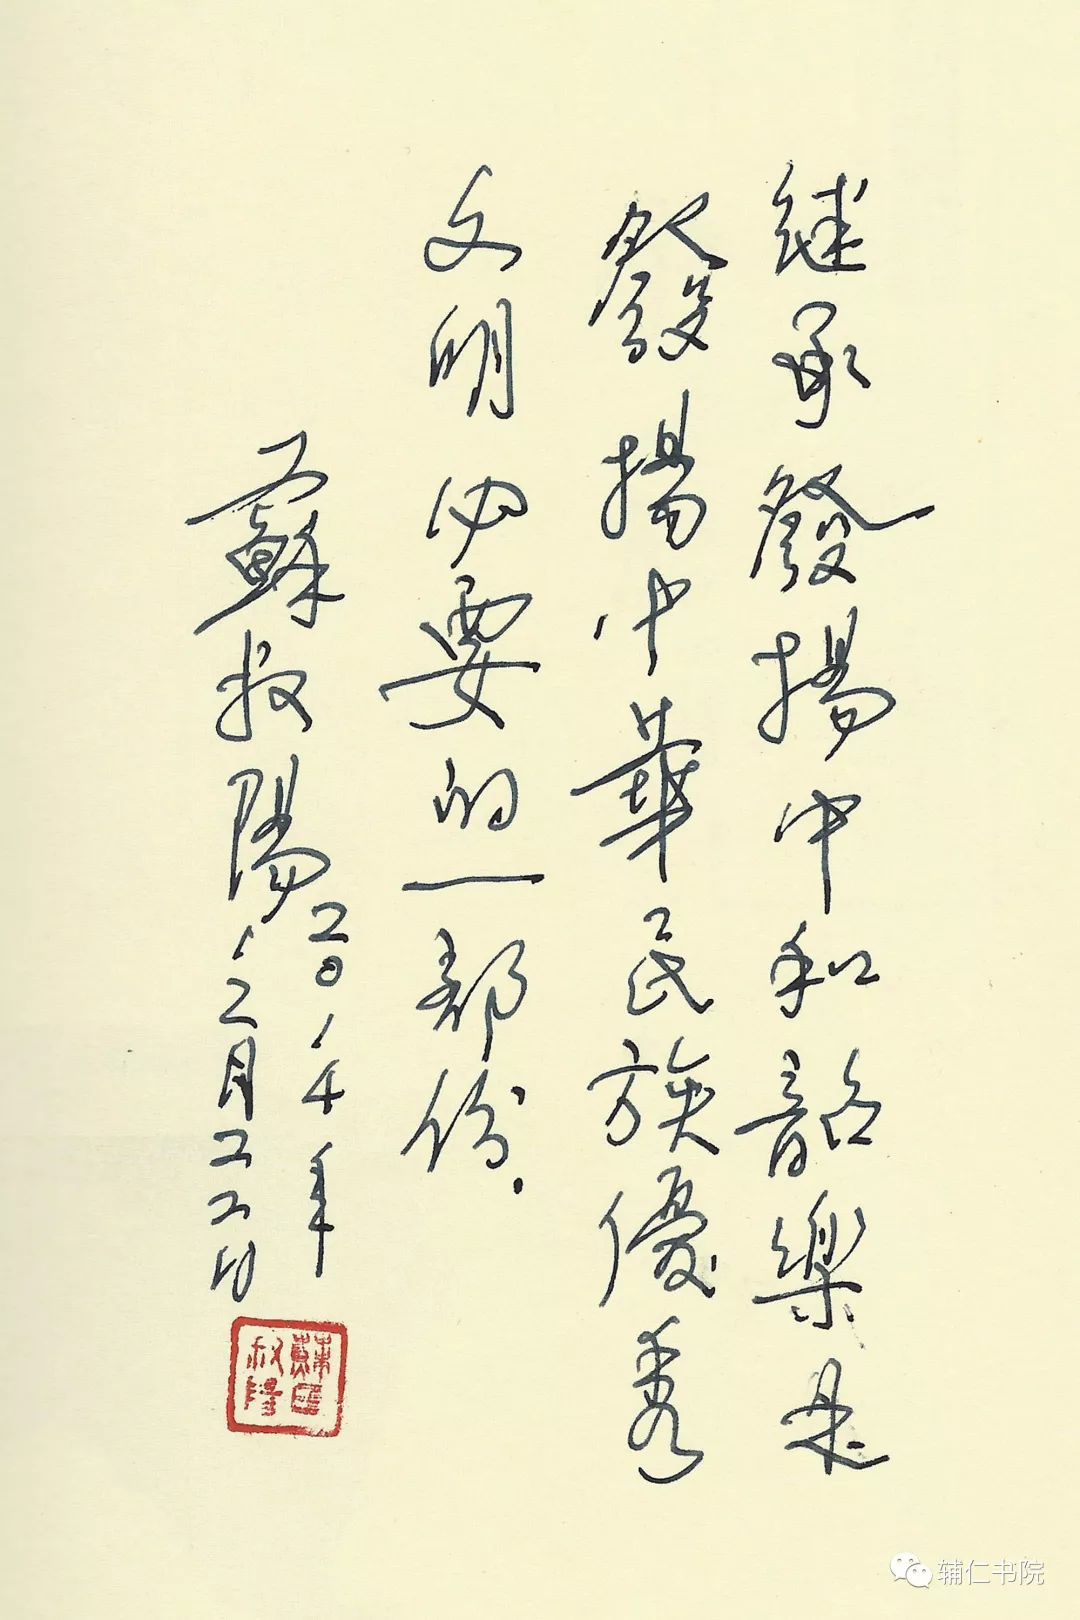 继承發揚中和韶樂是
發揚中華民族優秀
文明必要的一部份.
蘇叔陽
二0一七年
一二月二二日
蘇叔陽印
辅仁书院